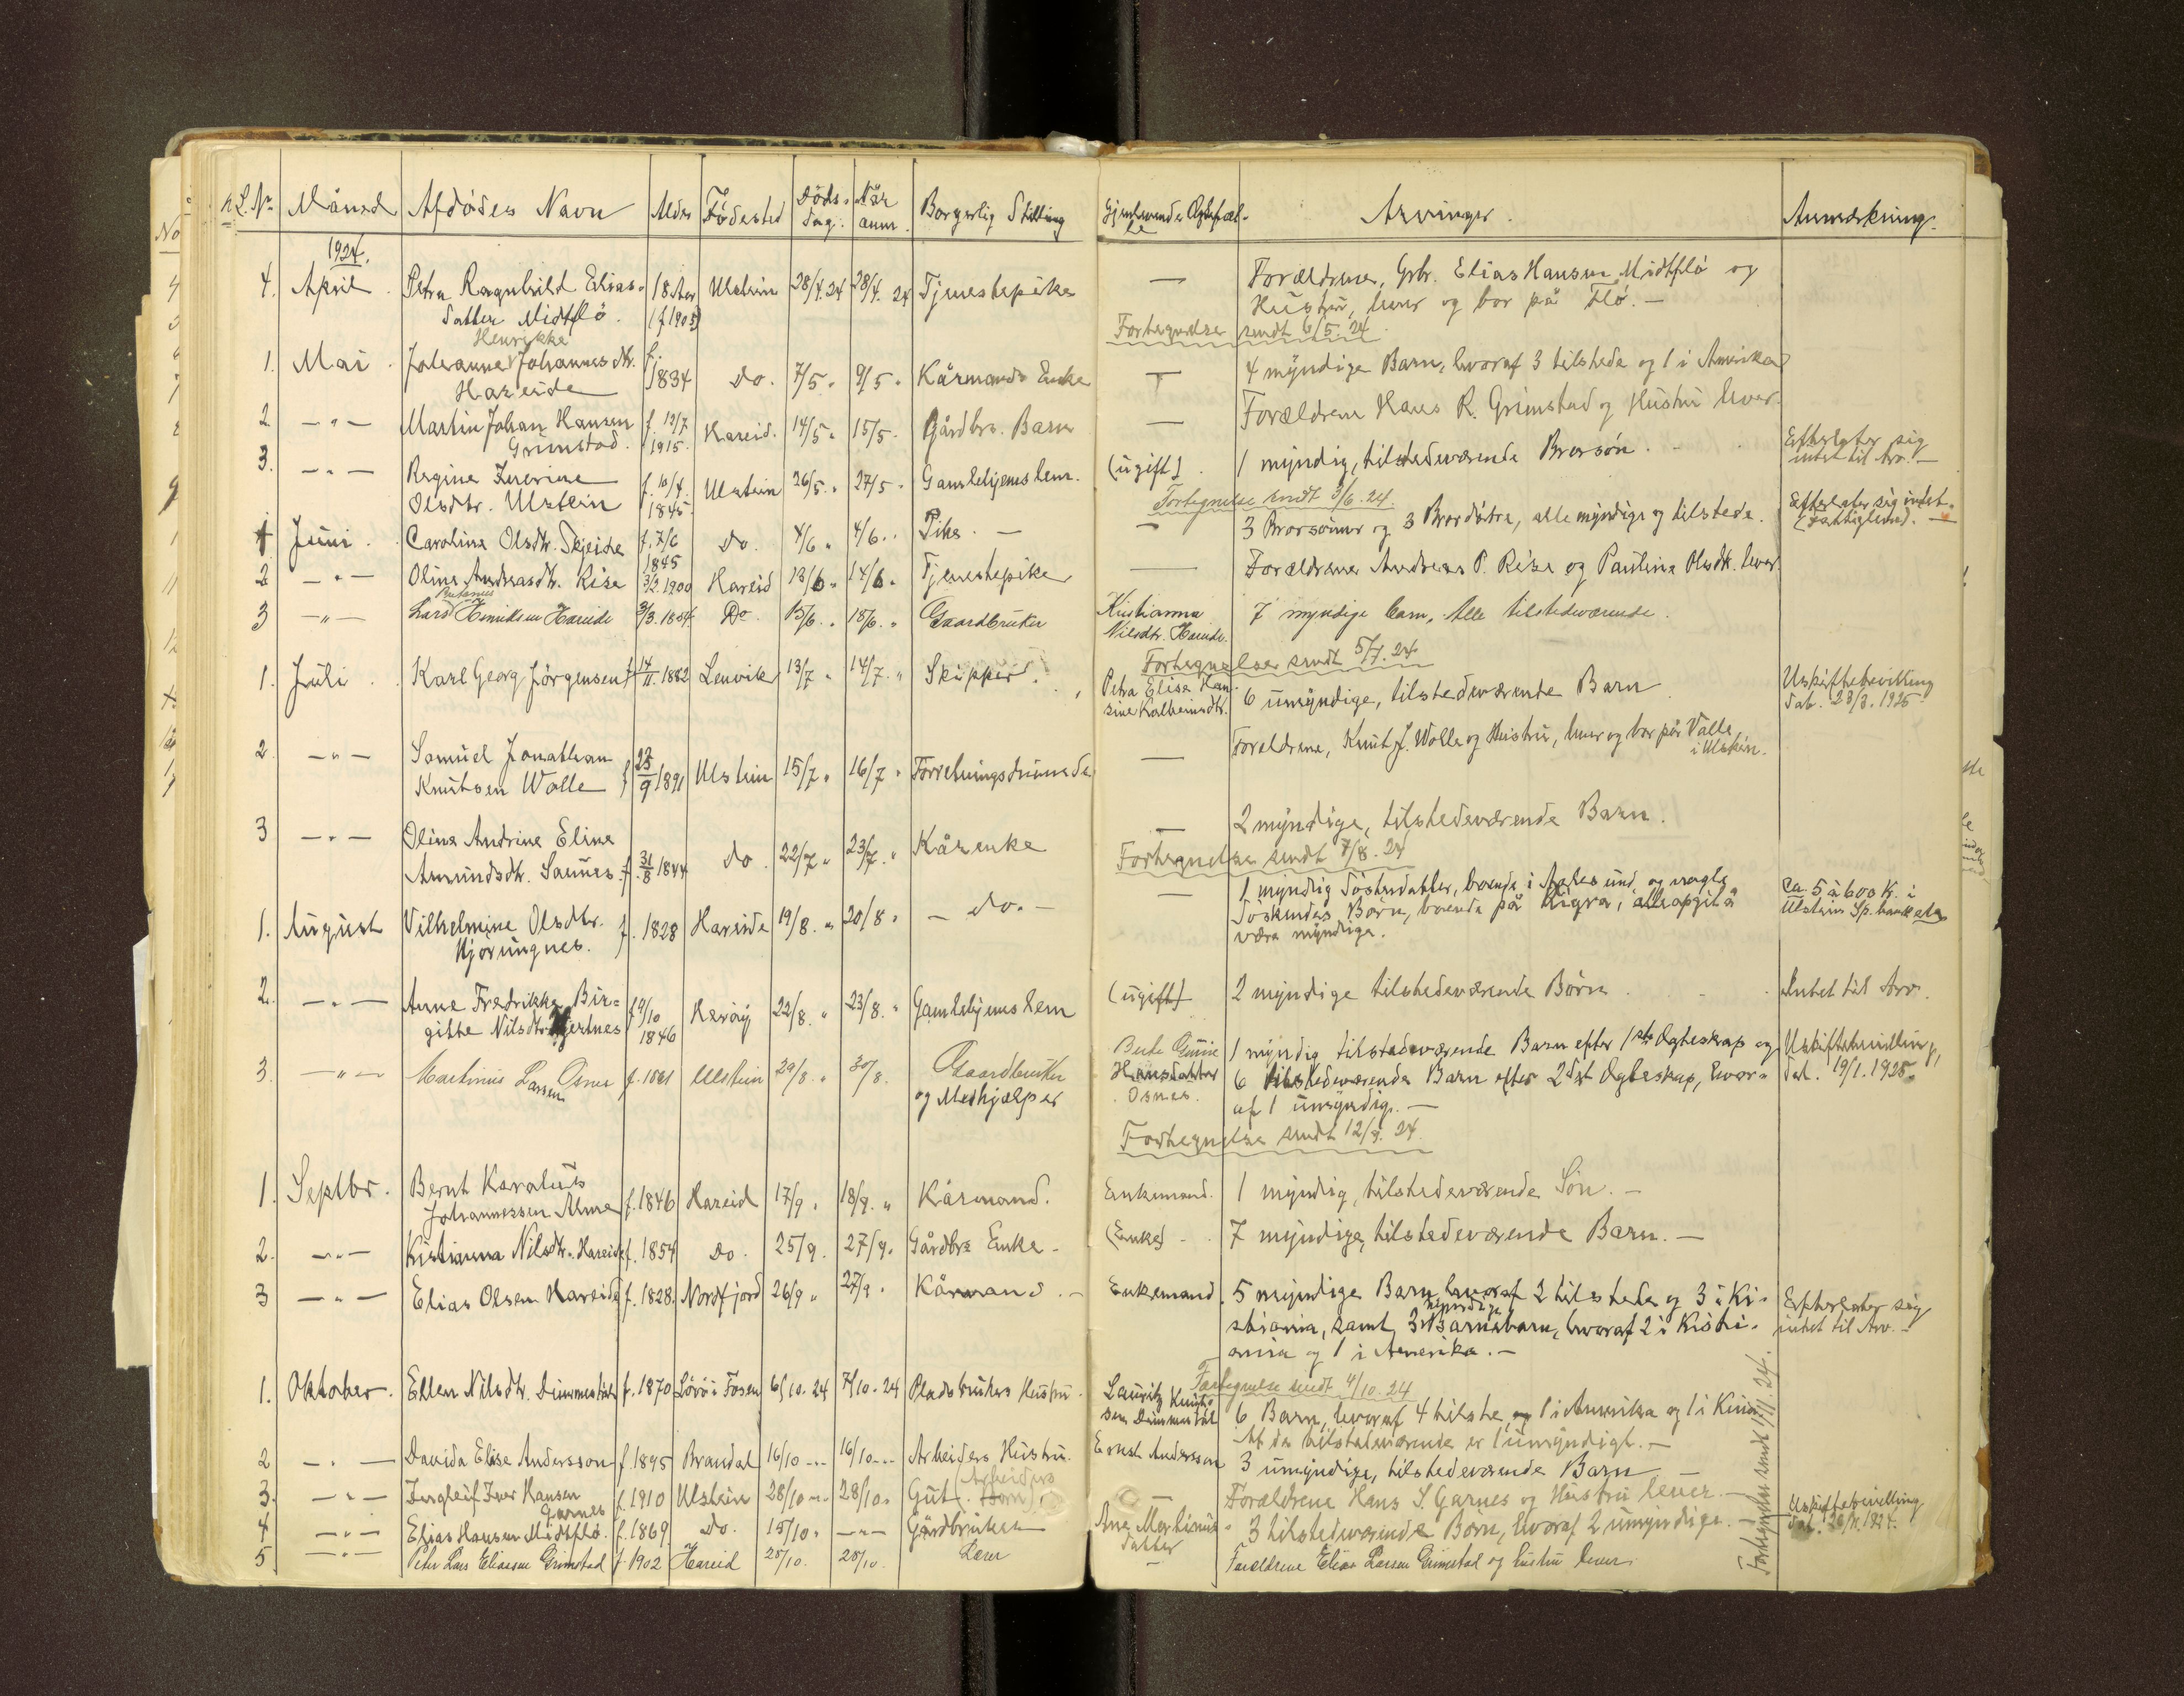 L. Nr. Måned Afdødes Navn Alder Fødested Døds- dag. Når anm. Borgerlig Stilling Gjenlevende Ægtefæl- le Arvinger. Anmerkning.
1924.
4. April. Petra Ragnhild Elias- 18 Aar Ulstein 28/4.24 28/4. 24 Tjenestepike — Forældrene, Gbr. Elias Hansen Midtflø og
datter Midtflø. (f 1905) Hustru, lever og bor på Flø. —
Fortegnelser sendt 6/5.24
Henrikke
1. Mai. Johanne Johannesdtr. f. 1834 Do. 7/5 " 9/5 " Kårmands Enke — 4 myndige Barn, hvoraf 3 tilstede og 1 i Amerika
Hareide
2. — " — Martin Johan Hansen f. 12/7 Hareid. 14/5 " 15/5 " Gårdbrs. Barn — Forældrene Hans R. Grimstad og Hustru lever.
Grimstad. 1915.
3. — " — Regine f. 10/4. Ulstein 26/5 " 27/5 " Gamlehjemslem. (ugift) 1 myndig, tilstedeværende Brorsøn. Efterlater sig
Olsdtr. Ulstein 1845. intet til Arv. —
Fortegnelse sendt 3/6.24
1 Juni. Caroline Olsdtr. Skjeide f. 7/6 1845 Do. 4/6 " 4/6 " Pike. — — 3 Brorsønner og 3 Brordøtre, alle myndige og tilstede. Efterlater sig intet.
(Fattiglem). —
2 — " — Oline Andreasdtr. Rise 3/2 1900 Hareid 13/6 " 14/6 " Tjenestepike — Forældrene Andreas P. Rise og Pauline Olsdtr. lever.
3 — " — Lars Henriksen Hareide 3/3. 1854. Do 15/6. " 18/6. " Gaardbruker Kristianna 7 myndige barn. Alle tilstedeværende.
Nilsdtr. Hareide.
Fortegnelser sendt 5/7.24
1. Juli. Karl Georg Jørgensen f 14/11. 1882 Lenvik 13/7 " 14/7 " Skipper. Petra Elise Han- 6 umyndige, tilstedeværende Barn Uskiftebevilling
sine Kalheimsdtr. dat. 28/3. 1925
2 — " — Samuel Jonathan f 23/9 1891 Ulstein 15/7 " 16/7 " Forretningsdrivende — Foreldrene, Knut J. Walle og Hustru, lever og bor på Valle
Knutsen Walle i Ulstein.
3 — " — Olina Andrine Eline f. 31/8 1844 Do. 22/7 " 23/7 " Kårenke — 2 myndige, tilstedeværende Barn.
Amundsdtr. Saunes.
Fortegnelse sendt 7/8.24
1. August Vilhelmine Olsdtr. f. 1828 Hareide 19/8. " 20/8 " — Do. — — 1 myndig Søsterdatter, boende i Aalesund, og nogle ca 5 à 600 K. i
Hjørungnes. Søskendes Børn, boende på Vigra, alle opgit å Ulstein Sp. bank
være myndige.
2. — " — Anne Fredrikke Bir= f 9/10 1846 Herøy 22/8. " 23/8. " Gamlehjemslem (ugift) 2 myndige tilstedeværende Børn Intet til Arv.
gitte Nilsdtr.
3. — " — Martinus Larsen Osnes f. 1861 Ulstein 29/8. " 30/8. Gaardbruker 1 myndig tilstedeværende Barn efter 1ste Ægteskap og Uskiftebevilling,
og Medhjælper Hansdatter 6 tilstedeværende Barn efter 2det Ægteskap, hvor= dat. 19/1. 1925.
Osnes. af 1 umyndig. —
Fortegnelse sendt 12/9. 24.
1. Septbr. Bernt Karolus f. 1846 Hareid 17/9 " 18/9. " Kårmand. Enkemand. 1 myndig, tilstedeværende Søn. —
Johannessen Alme
2. — " — Kristianna Nilsdtr. Hareide f. 1854 Do. 25/9. 27/9. Gårdbrs Enke - (Enke) 7 myndige, tilstedeværende Barn. —
3 — " — Elias Olsen Hareide f. 1828. Nordfjord 26/9 " 27/9 " Kårmand. Enkemand. 5 myndige Barn, hvoraf 2 tilstede og 3 i Kri- Efterlater sig
stiania, samt 3 myndige Barnebarn, hvoraf 2 i Kristi- intet til Arv. —
ania og 1 i Amerika. —
Fortegnelse sendt 4/10.24
1. Oktober. Ellen Nilsdtr. Dimmestøl f. 1870 i Fosen 6/10.24 7/10.24 Pladsbrukers Hustru. Lauritz Knut- 6 Barn, hvoraf 4 tilstede, 1 i Amerika og 1 i Kina.
sen Dimmestøl Af de tilstedeværende er 1 umyndigt. —
2 — " — Davida Elise Andersson f. 1895 Brandal 16/10 — " — 16/10 — " — Arbeiders Hustru. Ernst Andersson 3 umyndige, tilstedeværende Barn —
3. — " — Ingleif Iver Hansen Garnes f. 1910 Ulstein 28/10 — " — 28/10 " Gut. (Arbeiders Barn) — Forældrene Hans S. Garnes og Hustru lever. —
4 — " — Elias Hansen Midtflø. f. 1869 Do. 15/10 " — " — Gårdbruker Ane Martinus- 3 tilstedeværende Børn, hvoraf 2 umyndige. — Uskiftebevilling
datter dat. 26/11. 1924.
5 — " — Peter Lars Eliassen Grimstad f. 1902 Hareid 25/10. 28/10. Lærer — Forældrene Elias Larsen Grimstad og hustru lever.
Fortegnelse sendt 17/11.24.